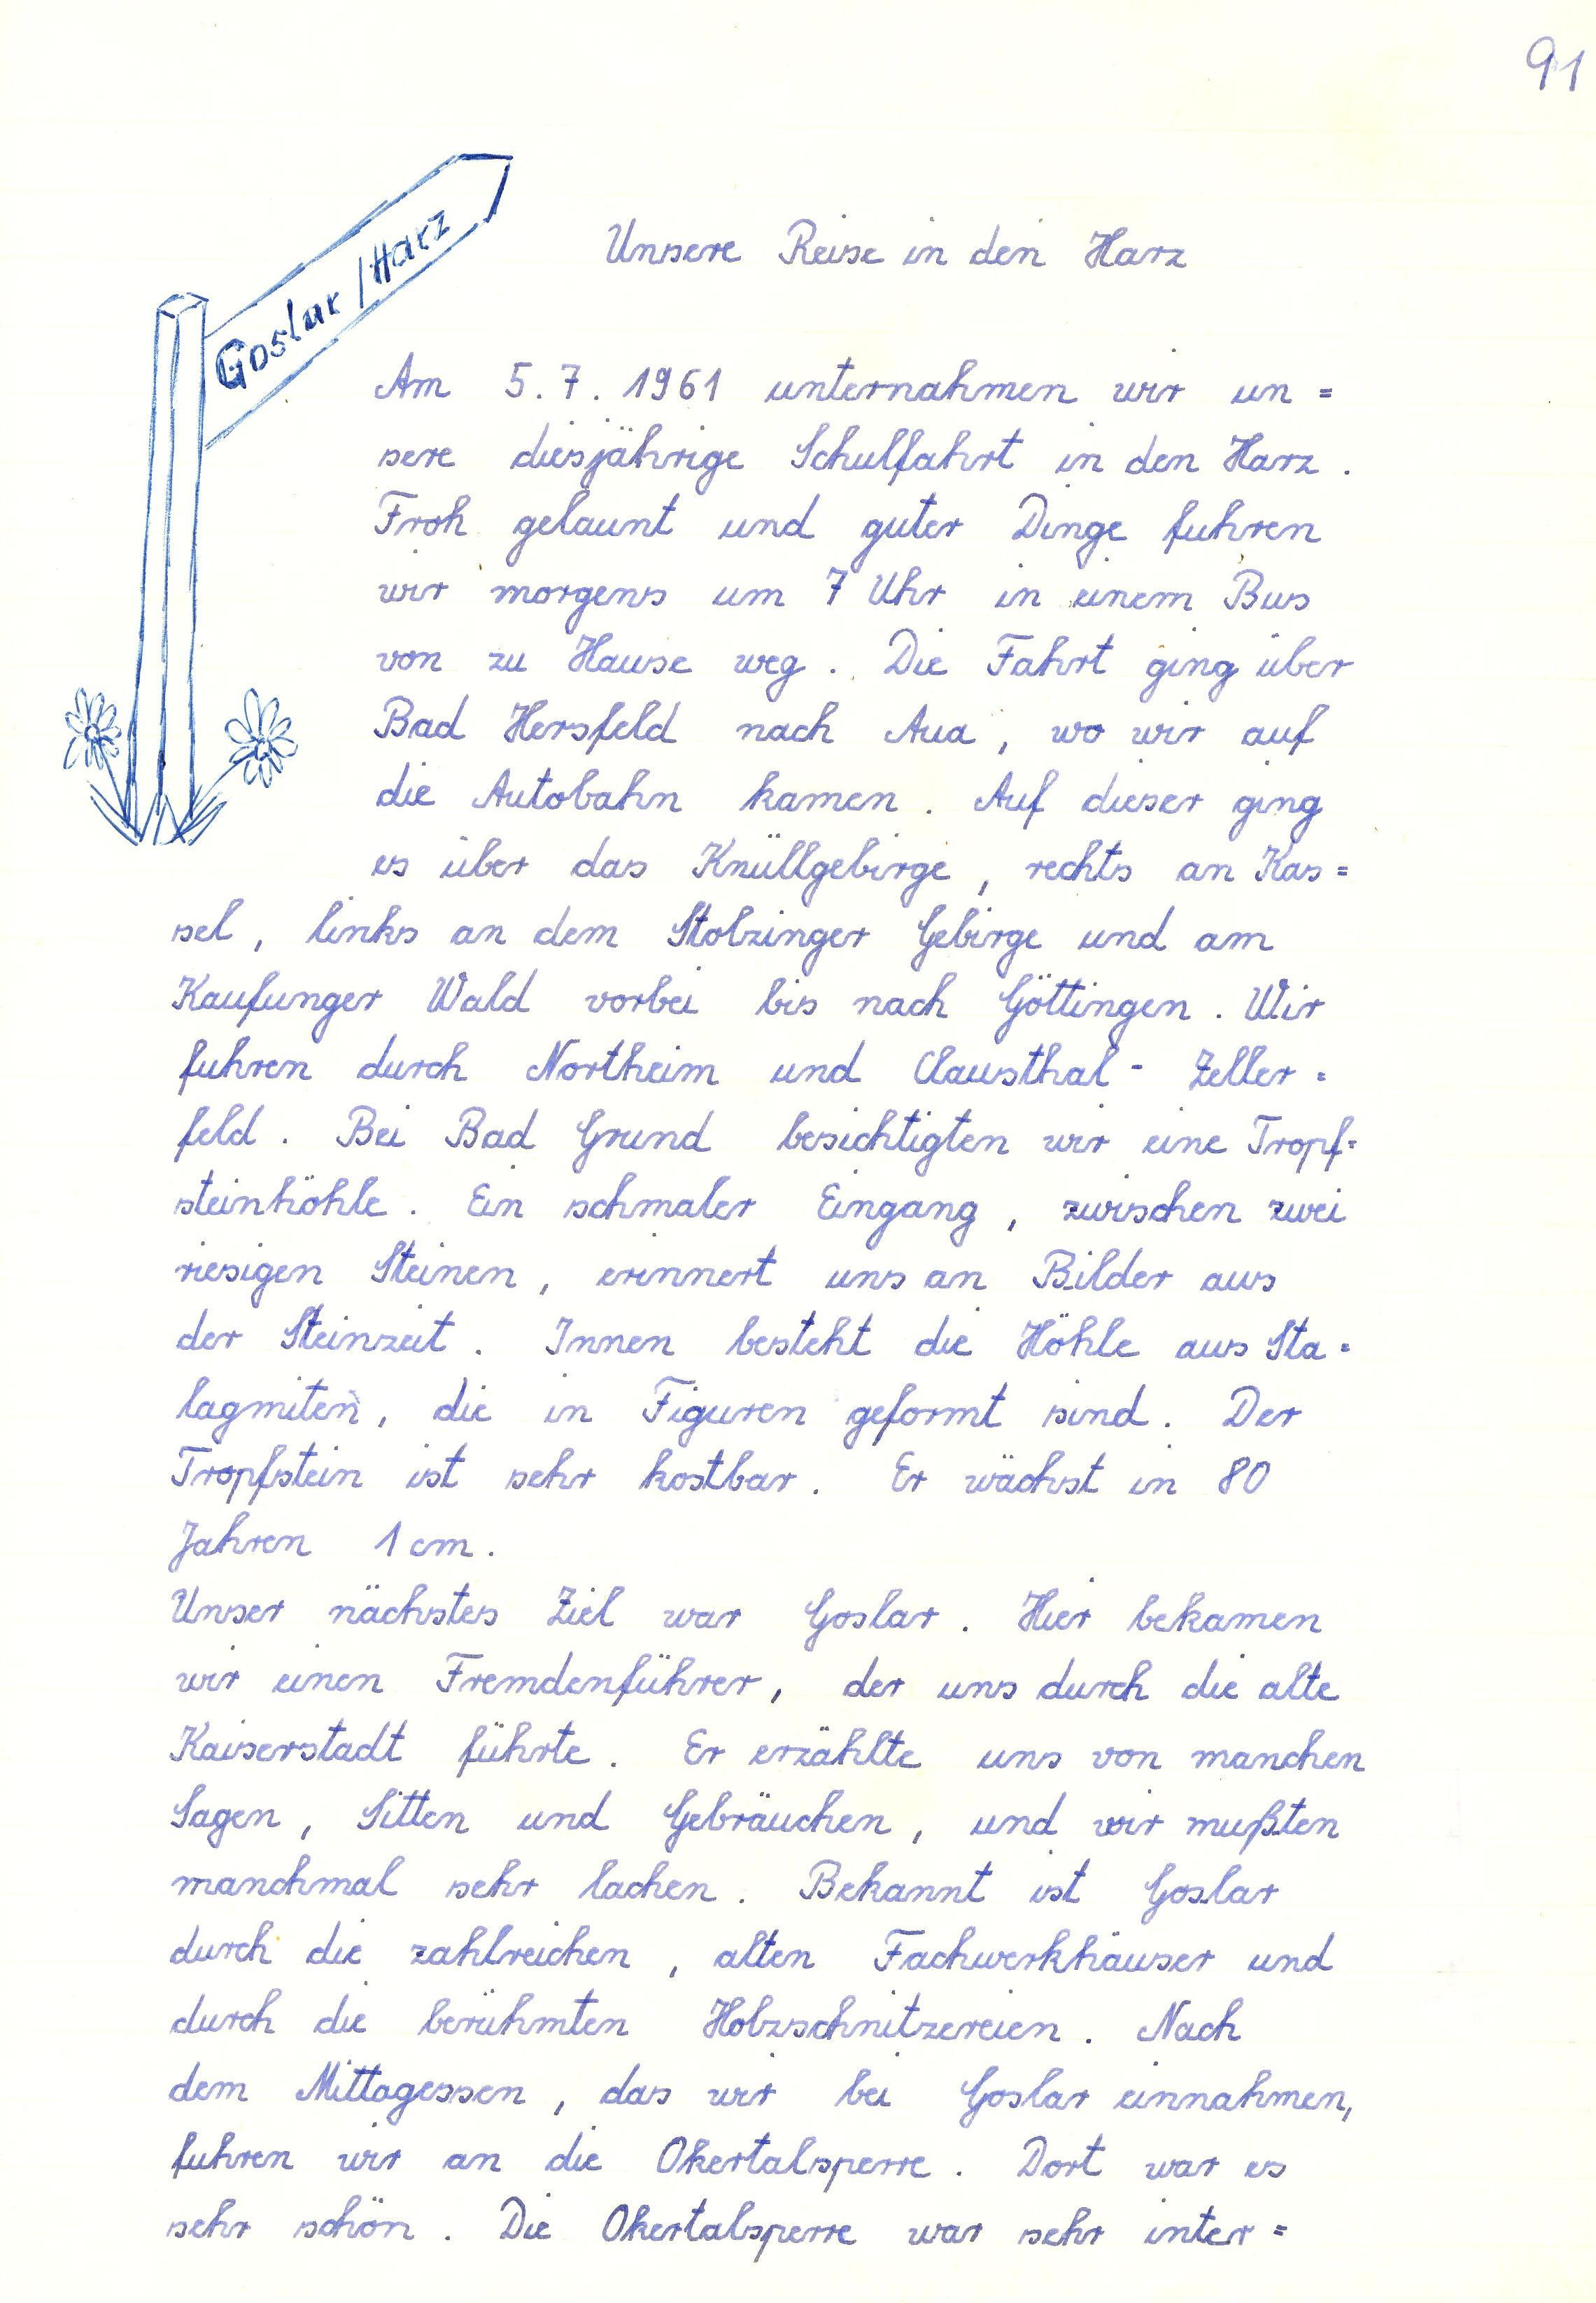 91
Goslar/Harz
Unsere Reise in den Harz
Am 5.7.1961 unternahmen wir un=
sere diesjährige Schulfahrt in den Harz.
Froh gelaunt und guter Dinge fuhren
wir morgens um 7 Uhr in einem Bus
von zu Hause weg. Die Fahrt ging über
Bad Hersfeld nach Aua, wo wir auf
die Autobahn kamen. Auf dieser ging
es über das Knüllgebirge, rechts an Kas=
sel, links an dem Stolzinger Gebirge und am
Kaufunger Wald vorbei bis nach Göttingen. Wir
fuhren durch Northeim und Clausthal-Zeller=
feld. Bei Bad Grund besichtigten wir eine Tropf=
steinhöhle. Ein schmaler Eingang, zwischen zwei
riesigen Steinen, erinnert uns an Bilder aus
der Steinzeit. Innen besteht die Höhle aus Sta=
lagmiten, die in Figuren geformt sind. Der
Tropfstein ist sehr kostbar. Er wächst in 80
Jahren 1 cm.
Unser nächstes Ziel war Goslar. Hier bekamen
wir einen Fremdenführer, der uns durch die alte
Kaiserstadt führte. Er erzählte uns von manchen
Sagen, Sitten und Gebräuchen, und wir mußten
manchmal sehr lachen. Bekannt ist Goslar
durch die zahlreichen, alten Fachwerkhäuser und
durch die berühmten Holzschnitzereien. Nach
dem Mittagessen, das wir bei Goslar einnahmen,
fuhren wir an die Okertalsperre. Dort war es
sehr schön. Die Okertalsperre war sehr inter=